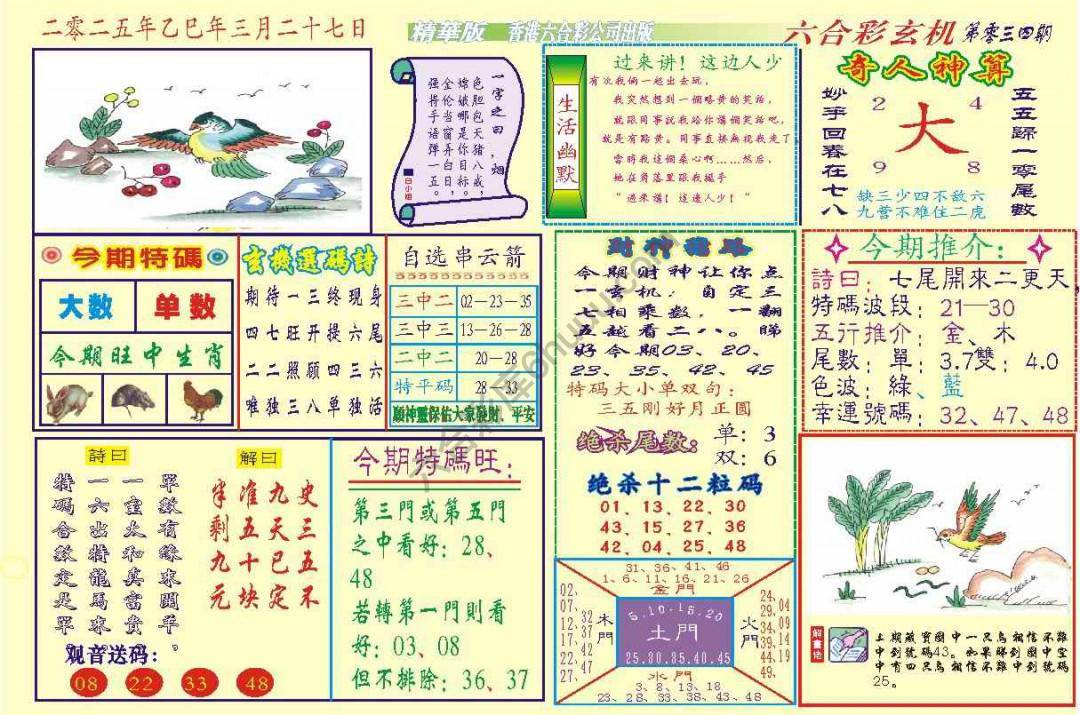 二零二五年乙巳年三月二十七日
精華版 香港六合彩公司出版
六合彩玄机 第零三四期
一字之曰：烟
色胆包天猪八戒，
嫦娥哪是你目标，
金伦当窗弄白日，
强将手语弹一五。
白小姐
生活幽默
过来讲！这边人少
有次我俩一起出去玩，
我突然想到一個略黄的笑話，
就跟同事說我给你講個笑話吧，
就是有點黄。同事直接無視我走了，
當時我這個桑心啊……然后，
她在角落里跟我搖手
“過來講！這邊人少！”
奇人神算
妙手回春在七八
2 4
大
9 8
五五歸一零尾數
缺三少四不敌六
九营不难住二虎
今期特碼
大数 单数
今期旺中生肖
玄機選碼詩
期待一三终現身
四七旺开提六尾
二二照顧四三六
唯独三八单独活
自选串云箭
三中二 02—23—35
三中三 13—26—28
二中二 20—28
特平码 28—33
願神靈保佑大家發財、平安
今期财神让你点
一玄机，自定三
七相乘数，一翻
五越看二八。睇
好今期03、20、
23、35、42、45
特码大小单双句：
三五刚好月正圆
绝杀尾数： 单：3
双：6
绝杀十二粒码
01、13、22、30
43、15、27、36
42、04、25、48
今期推介：
詩曰：七尾開來二更天，
特碼波段：21—30
五行推介：金、木
尾數：單：3.7雙：4.0
色波：綠、藍
幸運號碼：32、47、48
詩曰
單數有緣來開平，
一室太和真富貴。
一六出特龍馬來，
特碼合數定是單。
解曰
史三五不
九天已定
准五十块
半剩九元
观音送码：
08 22 33 48
今期特碼旺：
第三門或第五門
之中看好：28、
48
若轉第一門則看
好：03、08
但不排除：36、37
31、36、41、46
1、6、11、16、21、26
金門
02、07、12、17、22、27、
32、37、42、47
木門
5.10.15.20
土門
25.30.35.40.45
火門
24、29、34、39、44、49、
04、09、14、19
水門
3、8、13、18
23、28、33、38、43、48
解畫语
上期藏寶圖中一只鸟相信不難
中到號碼43。如果睇到圖中空
中有四只鸟相信不難中到號碼
25。
六合彩库6huuu.com